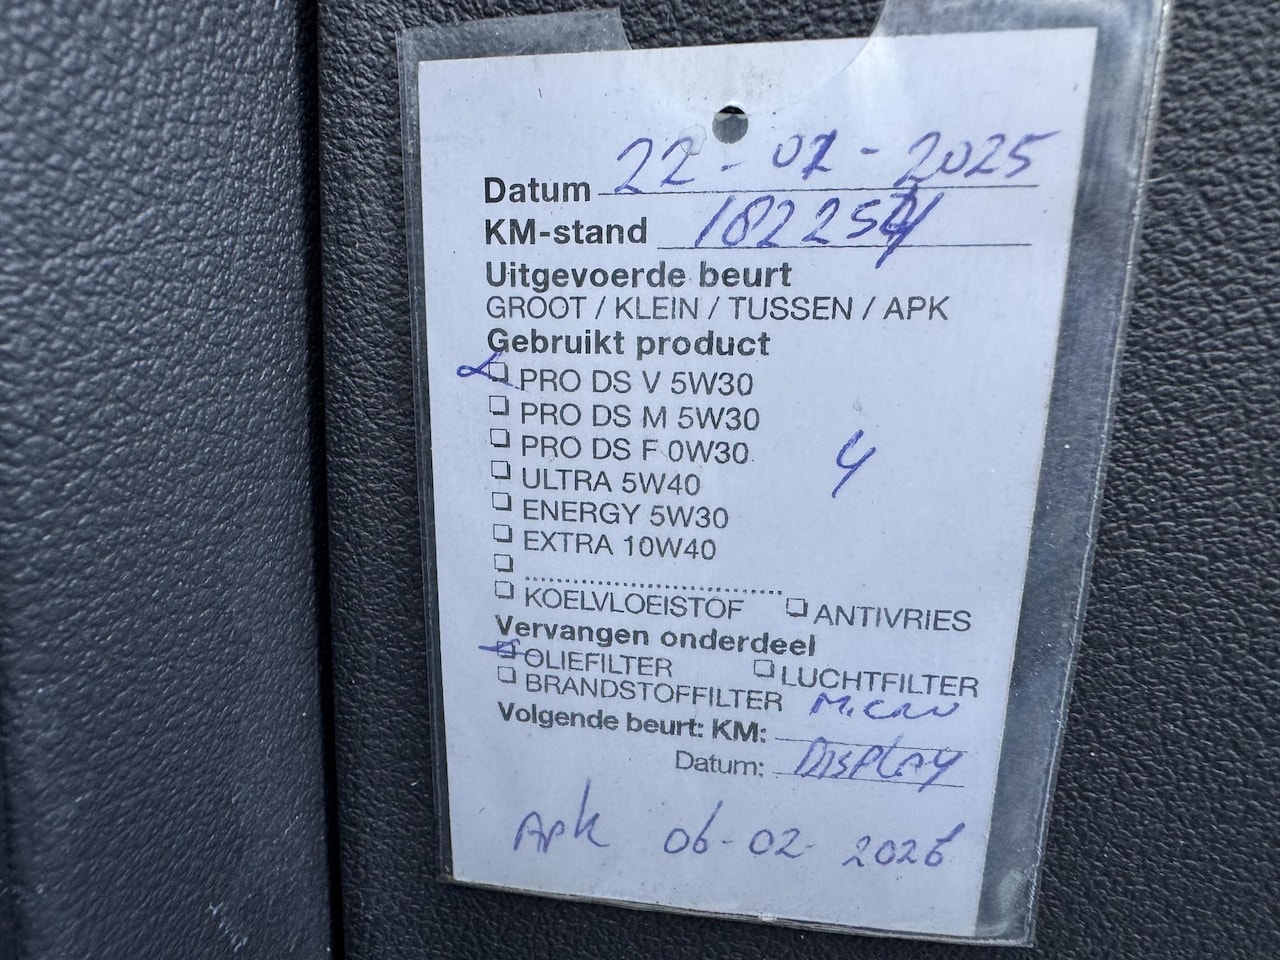 Datum 22-01-2025
KM-stand 182254
Uitgevoerde beurt
GROOT / KLEIN / TUSSEN / APK
Gebruikt product
PRO DS V 5W30
PRO DS M 5W30
PRO DS F 0W30
4
ULTRA 5W40
ENERGY 5W30
EXTRA 10W40
KOELVLOEISTOF ANTIVRIES
Vervangen onderdeel
OLIEFILTER LUCHTFILTER
BRANDSTOFFILTER Micro
Volgende beurt: KM:
Datum: DISPLAY
Apk 06-02-2026